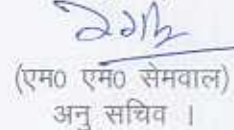 (एम0 एम0 सेमवाल)
अनु सचिव ।